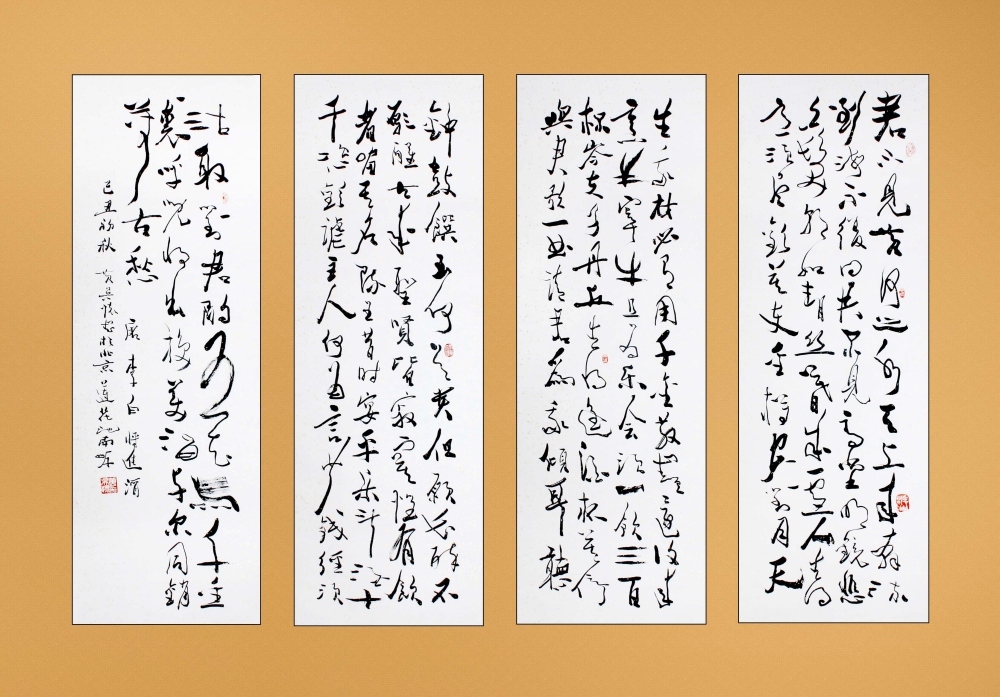 君不見黃河之水天上來奔流
到海不復回君不見高堂明鏡悲
白髮朝如青絲暮成雪人生得
意須盡歡莫使金樽空對月天
生我材必有用千金散盡還復來
烹羊宰牛且為樂會須一飲三百
杯岑夫子丹丘生將進酒杯莫停
與君歌一曲請君為我傾耳聽
鐘鼓饌玉何足貴但願長醉不
願醒古來聖賢皆寂寞惟有飲
者留其名陳王昔時宴平樂斗酒十
千恣歡謔主人何為言少錢徑須
沽取對君酌五花馬千金
裘呼兒將出換美酒與爾同銷
萬古愁 唐李白將進酒
己丑初秋 於北京蓮花池南畔